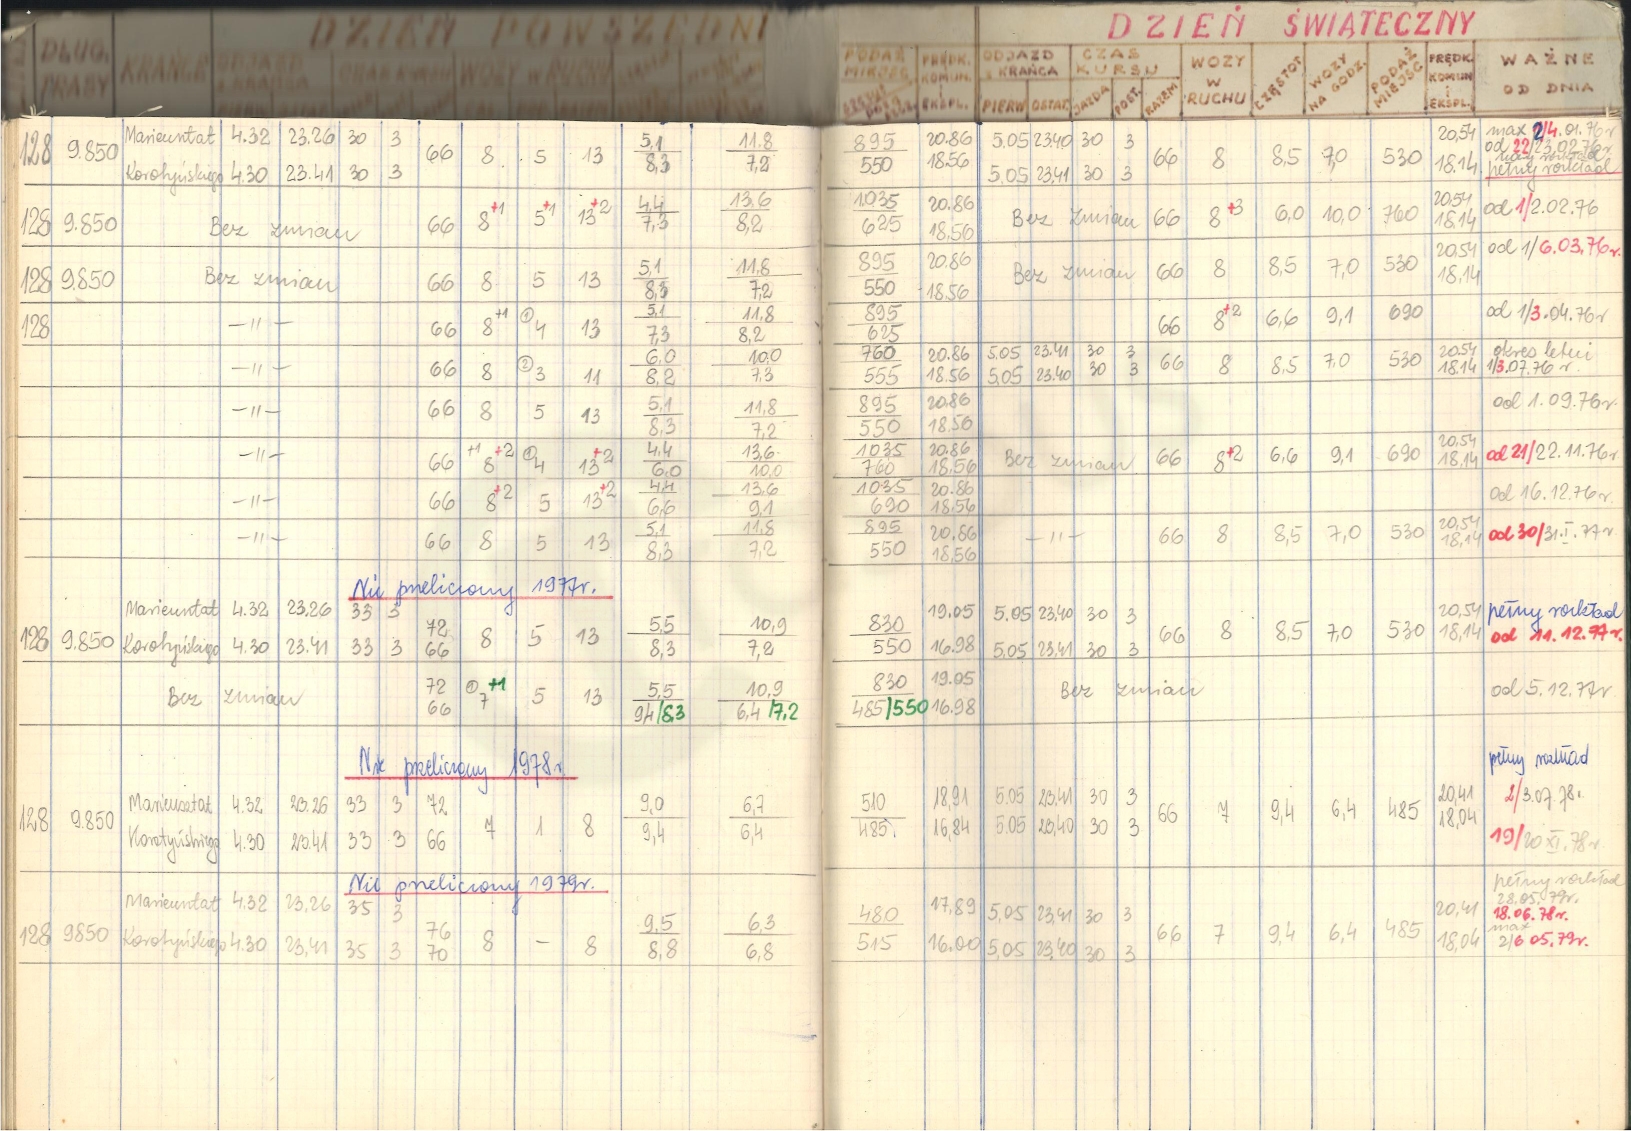 DZIEŃ POWSZEDNI DZIEŃ ŚWIĄTECZNY
DŁUG. TRASY KRAŃCE ODJAZD Z KRAŃCA PIERW. CZAS KURSU WOZY W RUCHU PODAŻ MIEJSC PRĘDK. KOMUN. I EKSPL. ODJAZD Z KRAŃCA PIERW. OSTAT. CZAS KURSU JAZDA POST. RAZEM WOZY W RUCHU CZĘSTOT. WOZY NA GODZ. PODAŻ MIEJSC PRĘDK. KOMUN. I EKSPL. WAŻNE OD DNIA
128 9.850 Mariensztat 4.32 23.26 30 3 66 8 5 13 5,1 11.8 895 20.86 5.05 23.40 30 3 66 8 8,5 7,0 530 20,54 max 2/4.01.76r
Korotyńskiego 4.30 23.41 30 3 8,3 7,2 550 18.56 5.05 23.41 30 3 18.14 od 22/23.02.76r
pełny rozkład
128 9.850 Bez zmian 66 8+1 5+1 13+2 4,4 13,6 1035 20.86 Bez zmian 66 8+3 6,0 10,0 760 20,54 od 1/2.02.76
7,3 8,2 625 18.56 18.14
128 9.850 Bez zmian 66 8 5 13 5,1 11,8 895 20.86 Bez zmian 66 8 8,5 7,0 530 20,54 od 1/6.03.76r.
8,3 7,2 550 18.56 18.14
128 —"— 66 8+1 ①4 13 5,1 11,8 895 66 8+2 6,6 9,1 690 od 1/3.04.76r
7,3 8,2 625
—"— 66 8 ②3 11 6,0 10,0 760 20.86 5.05 23.41 30 3 66 8 8,5 7,0 530 20.54 okres letni
8,2 7,3 555 18.56 5.05 23.40 30 3 18.14 1/3.07.76 r.
—"— 66 8 5 13 5,1 11,8 895 20.86 od 1.09.76r.
8,3 7,2 550 18.56
—"— 66 +1 8+2 ①4 13+2 4,4 13,6 1035 20.86 Bez zmian 66 8+2 6,6 9,1 690 20,54 od 21/22.11.76r
6,0 10,0 760 18.56 18.14
—"— 66 8+2 5 13+2 4,4 13,6 1035 20.86 od 16.12.76r.
6,6 9,1 690 18.56
—"— 66 8 5 13 5,1 11,8 895 20.86 —"— 66 8 8,5 7,0 530 20,54 od 30/31.I.77r
8,3 7,2 550 18.56 18,14
Nie przeliczony 1977r.
Mariensztat 4.32 23.26 33 3 72 5,5 10,9 830 19.05 5.05 23.40 30 3 20,54 pełny rozkład
128 9.850 Korotyńskiego 4.30 23.41 33 3 66 8 5 13 8,3 7,2 550 16.98 5.05 23.41 30 3 66 8 8,5 7,0 530 18,14 od 11.12.77r.
Bez zmian 72 ①7+1 5 13 5,5 10,9 830 19.05 Bez zmian od 5.12.77r.
66 9,4/8,3 6,4/7,2 485/550 16.98
Nie przeliczony 1978r. pełny rozkład
Mariensztat 4.32 23.26 33 3 72 9,0 6,7 510 18,91 5.05 23,41 30 3 20,41 2/3.07.78r.
128 9.850 7 1 8 66 7 9,4 6,4 485
Korotyńskiego 4.30 23.41 33 3 66 9,4 6,4 485. 16,84 5.05 23,40 30 3 18,04 19/20 XI.78r
Nie przeliczony 1979r. pełny rozkład
Mariensztat 4.32 23,26 35 3 76 9,5 6,3 480 17,89 5,05 23,41 30 3 20,41 28.05.79r.
18.06.78r.
128 9850 Korotyńskiego 4.30 23,41 35 3 70 8 – 8 8,8 6,8 515 16.00 5,05 23,40 30 3 66 7 9,4 6,4 485 18,04 max
2/6 05.79r.